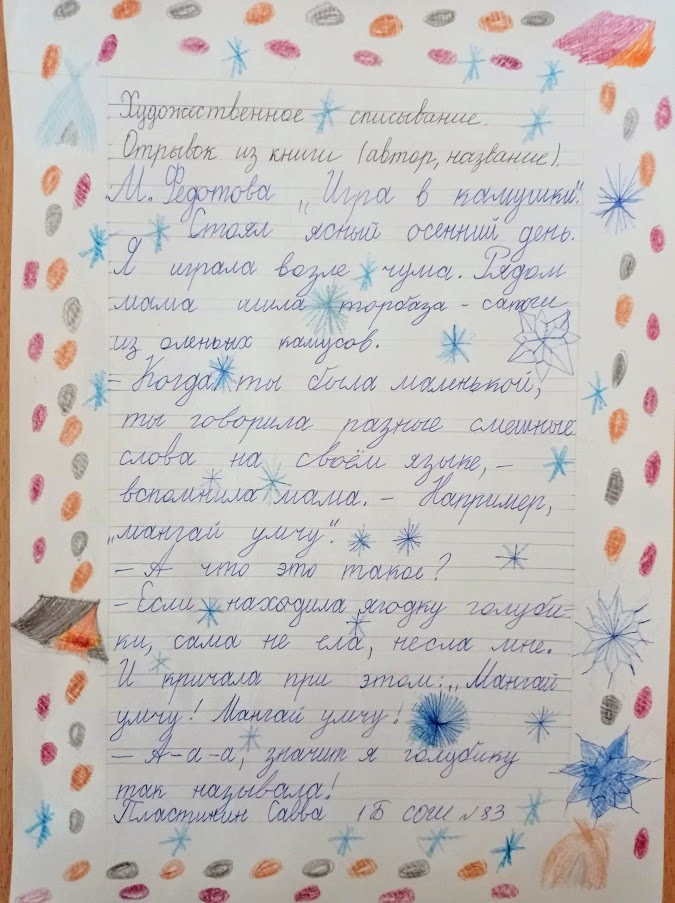 Художественное списывание.
Отрывок из книги (автор, название).
М. Федотова „Игра в камушки".
Стоял ясный осенний день.
Я играла возле чума. Рядом
мама шила торбаза - сапоги
из оленьих камусов.
- Когда ты была маленькой,
ты говорила разные смешные
слова на своём языке, -
вспомнила мама. - Например,
„мангай умчу".
- А что это такое?
- Если находила ягодку голуби-
ки, сама не ела, несла мне.
И кричала при этом: „Мангай
умчу! Мангай умчу!
- А-а-а, значит я голубику
так называла!
Пластинин Савва 1 Б СОШ №83